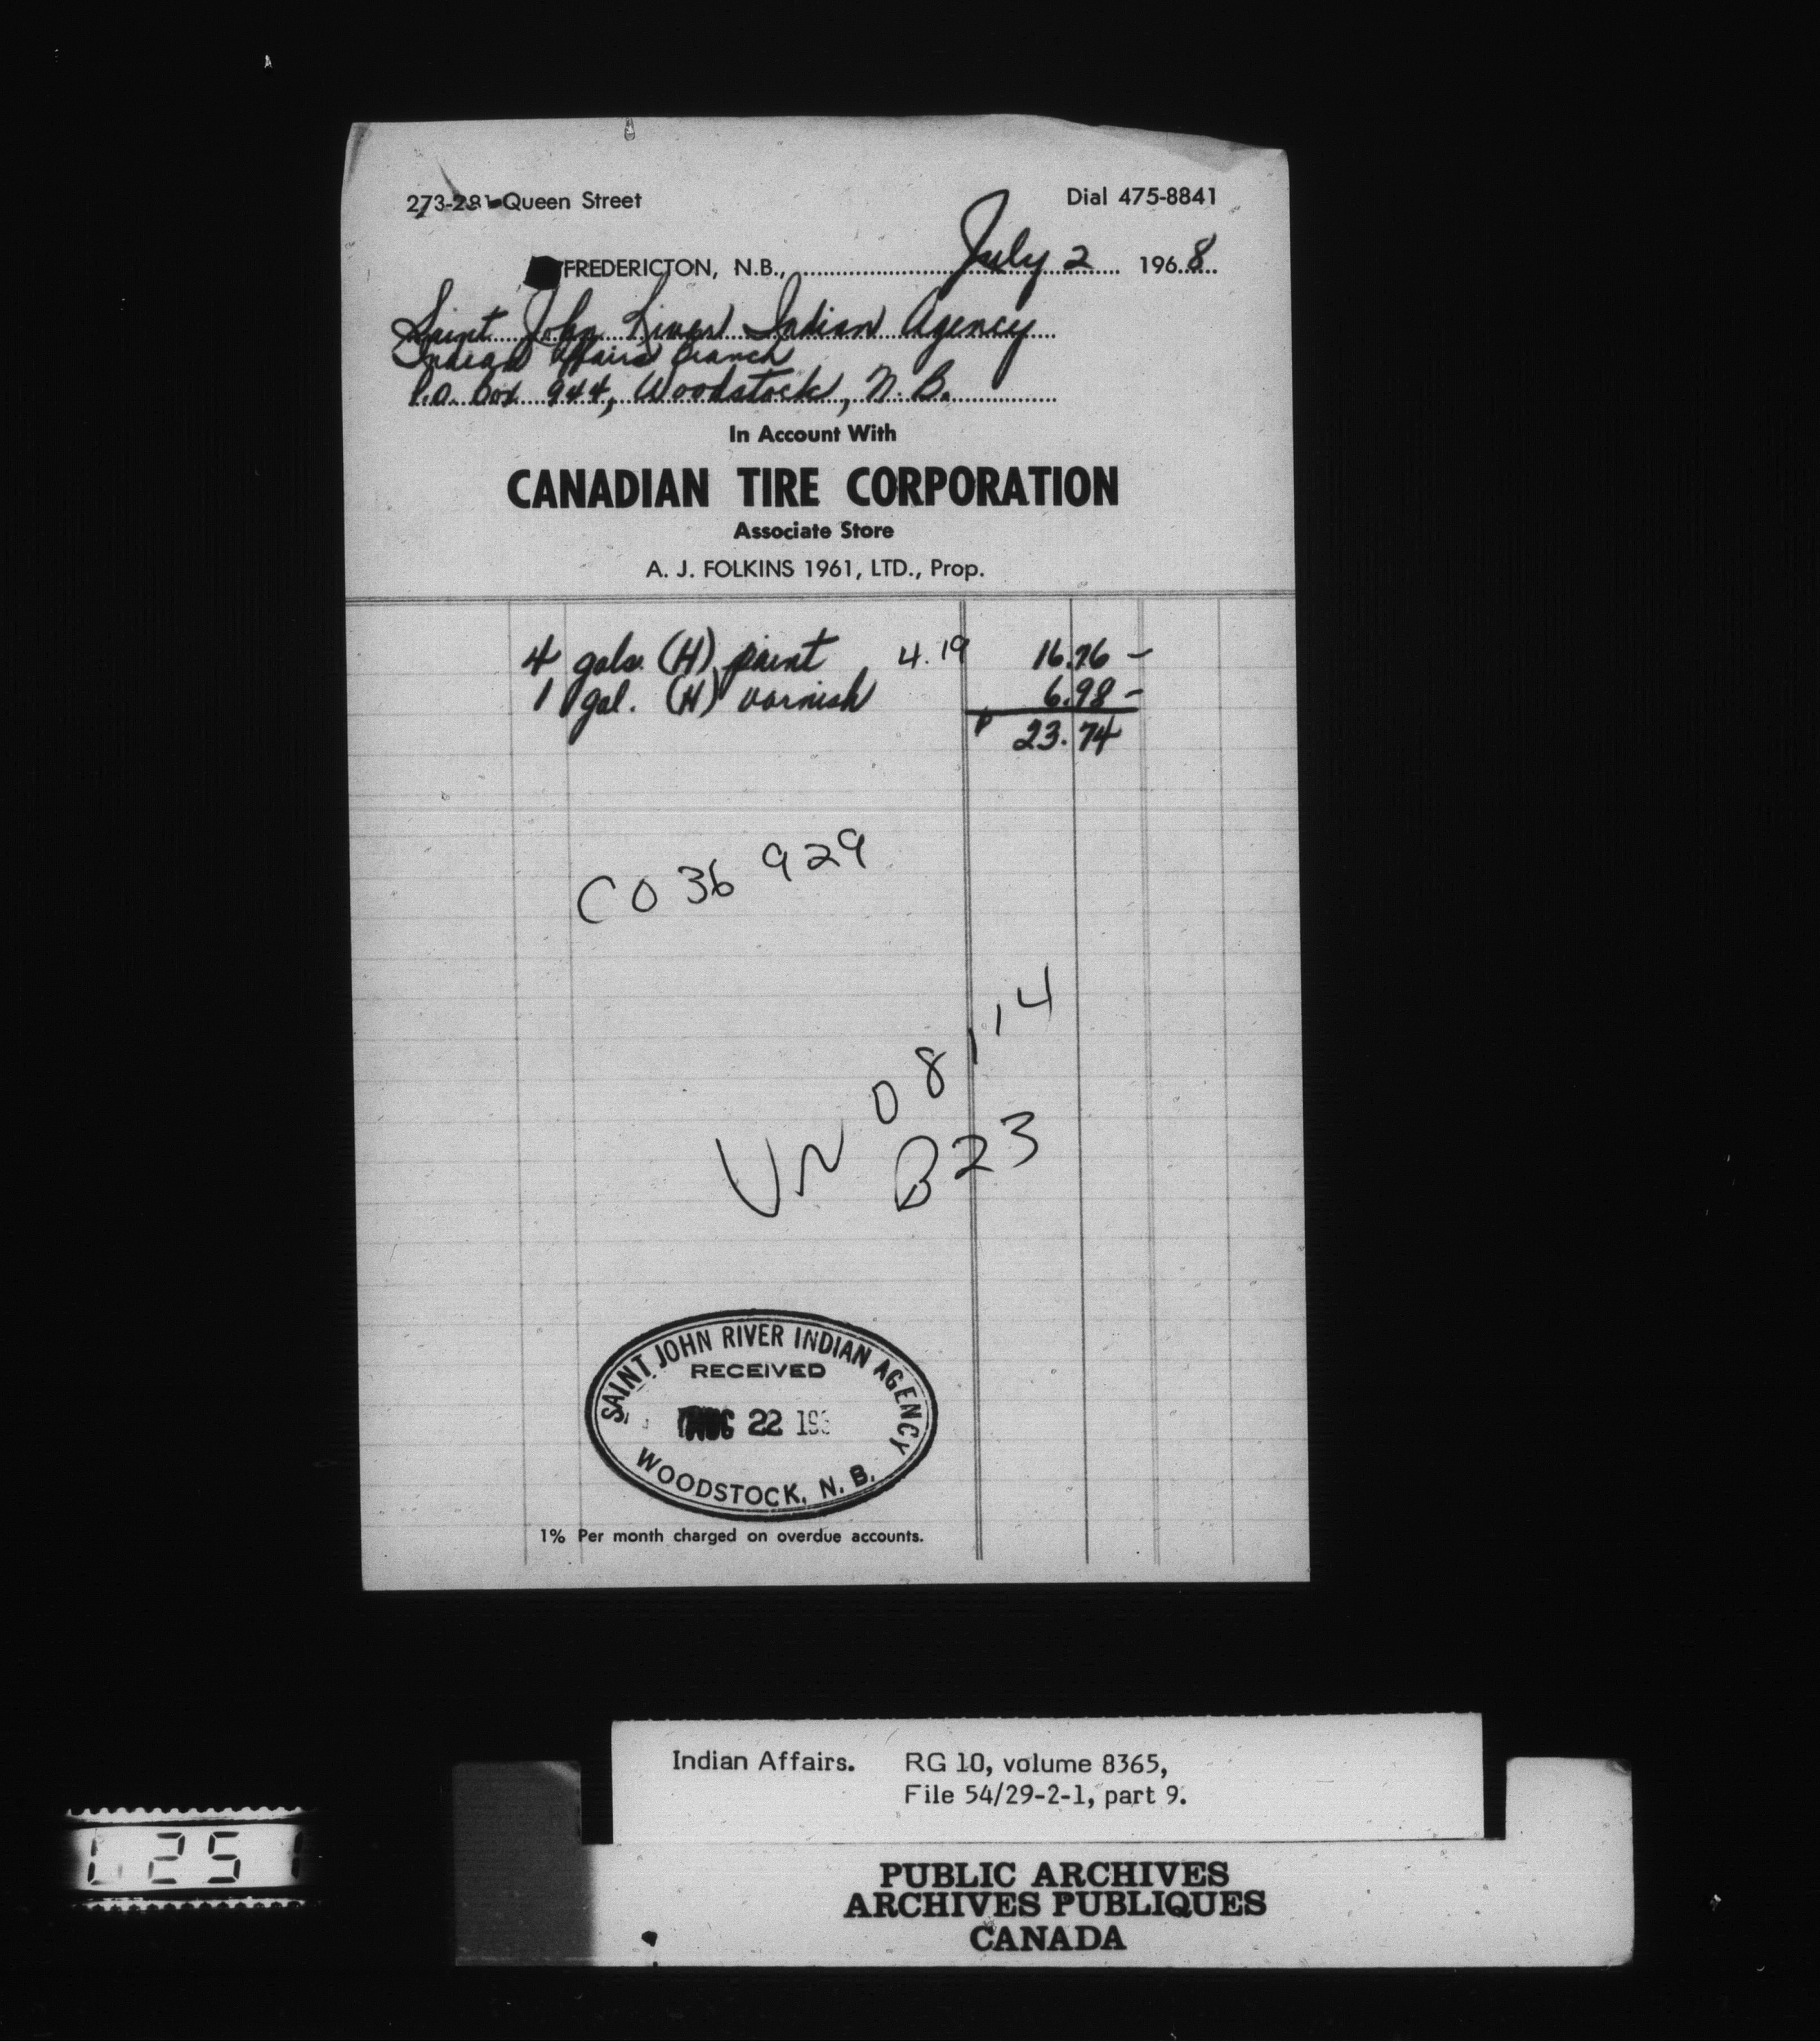 273-281 Queen Street Dial 475-8841
FREDERICTON, N.B., July 2 1968
Saint John River Indian Agency
Indian Affairs Branch
P.O. Box 944, Woodstock, N.B.
In Account With
CANADIAN TIRE CORPORATION
Associate Store
A. J. FOLKINS 1961, LTD., Prop.
4 gals. (H) paint 4.19 16.76 -
1 gal. (H) varnish 6.98 -
23.74
CO 36 929
VN 08114
B23
SAINT JOHN RIVER INDIAN AGENCY
RECEIVED
AUG 22 19
WOODSTOCK, N. B.
1% Per month charged on overdue accounts.
Indian Affairs. RG 10, volume 8365,
File 54/29-2-1, part 9.
251
PUBLIC ARCHIVES
ARCHIVES PUBLIQUES
CANADA